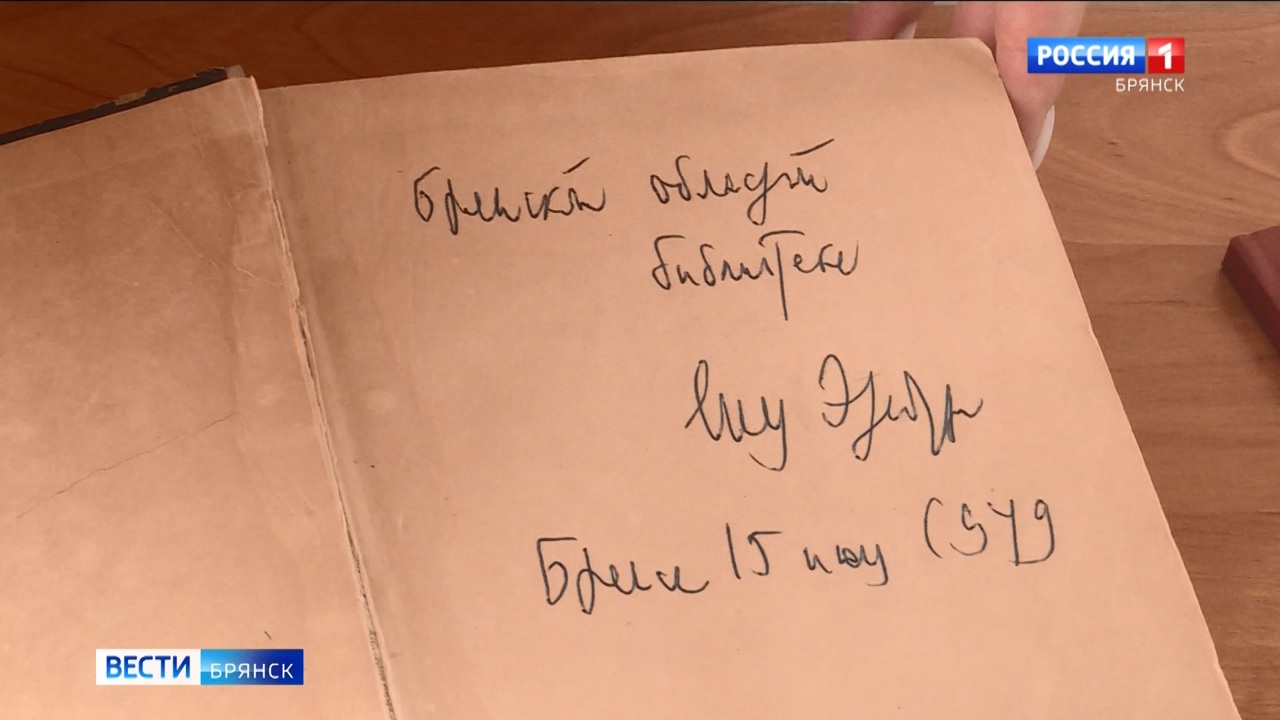 РОССИЯ 1
БРЯНСК
Брянской областной
библиотеке
Илья Эренбург
Брянск 15 июня 1949
ВЕСТИ БРЯНСК